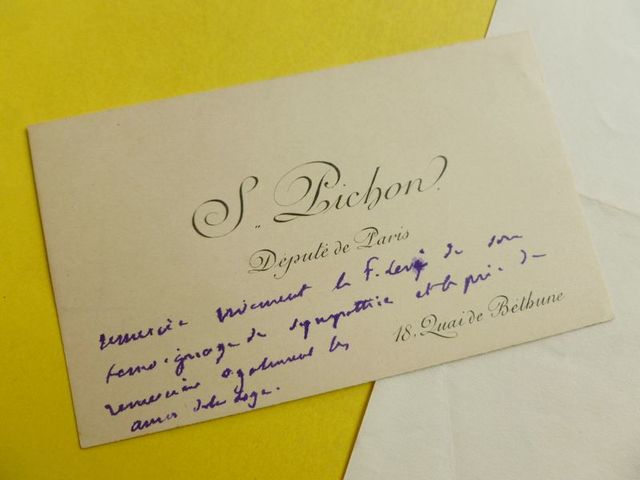 S. Pichon
Député de Paris
remercie vivement le F. Levé de son
temoignage de sympathie et le prie de
remercier egalement les
amis de la Loge.
18, Quai de Béthune